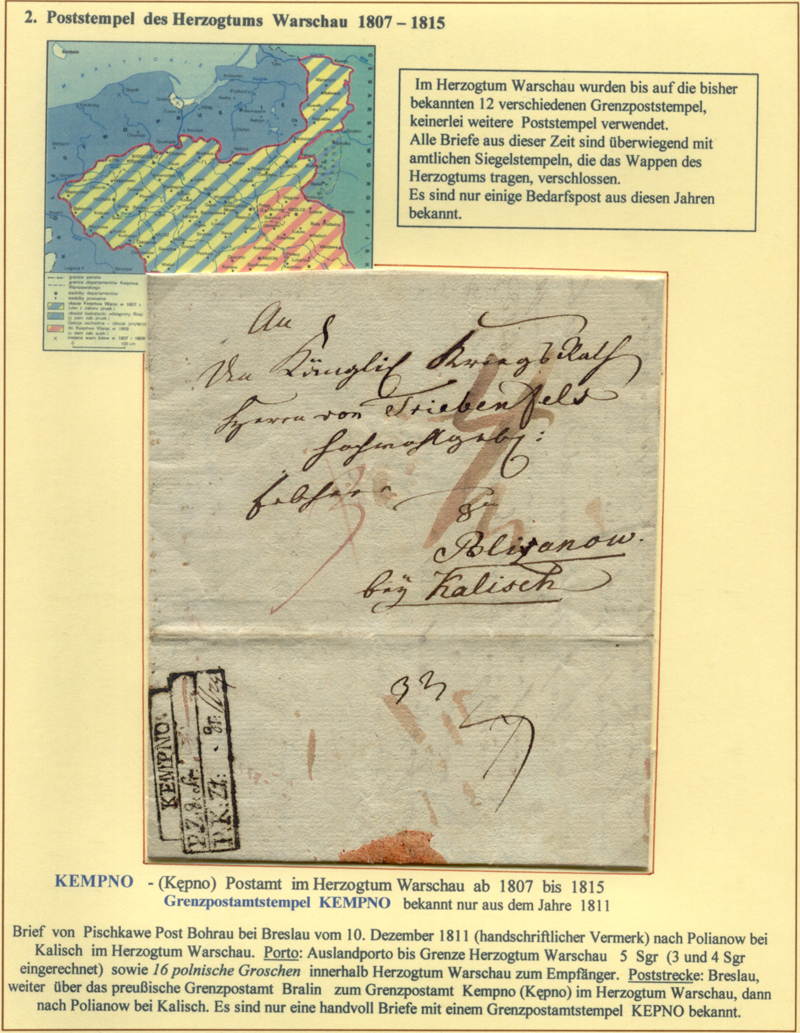 2. Poststempel des Herzogtums Warschau 1807 – 1815
Im Herzogtum Warschau wurden bis auf die bisher
bekannten 12 verschiedenen Grenzpoststempel,
keinerlei weitere Poststempel verwendet.
Alle Briefe aus dieser Zeit sind überwiegend mit
amtlichen Siegelstempeln, die das Wappen des
Herzogtums tragen, verschlossen.
Es sind nur einige Bedarfspost aus diesen Jahren
bekannt.
An
Den Königlich KriegsRath
Herrn von Triebenfels
Hochwohlgeb:
zu
Polixanow.
bey Kalisch
KEMPNO
P. K. Zł. gr.
KEMPNO - (Kępno) Postamt im Herzogtum Warschau ab 1807 bis 1815
Grenzpostamtstempel KEMPNO bekannt nur aus dem Jahre 1811
Brief von Pischkawe Post Bohrau bei Breslau vom 10. Dezember 1811 (handschriftlicher Vermerk) nach Polianow bei
Kalisch im Herzogtum Warschau. Porto: Auslandporto bis Grenze Herzogtum Warschau 5 Sgr (3 und 4 Sgr
eingerechnet) sowie 16 polnische Groschen innerhalb Herzogtum Warschau zum Empfänger. Poststrecke: Breslau,
weiter über das preußische Grenzpostamt Bralin zum Grenzpostamt Kempno (Kępno) im Herzogtum Warschau, dann
nach Polianow bei Kalisch. Es sind nur eine handvoll Briefe mit einem Grenzpostamtstempel KEPNO bekannt.